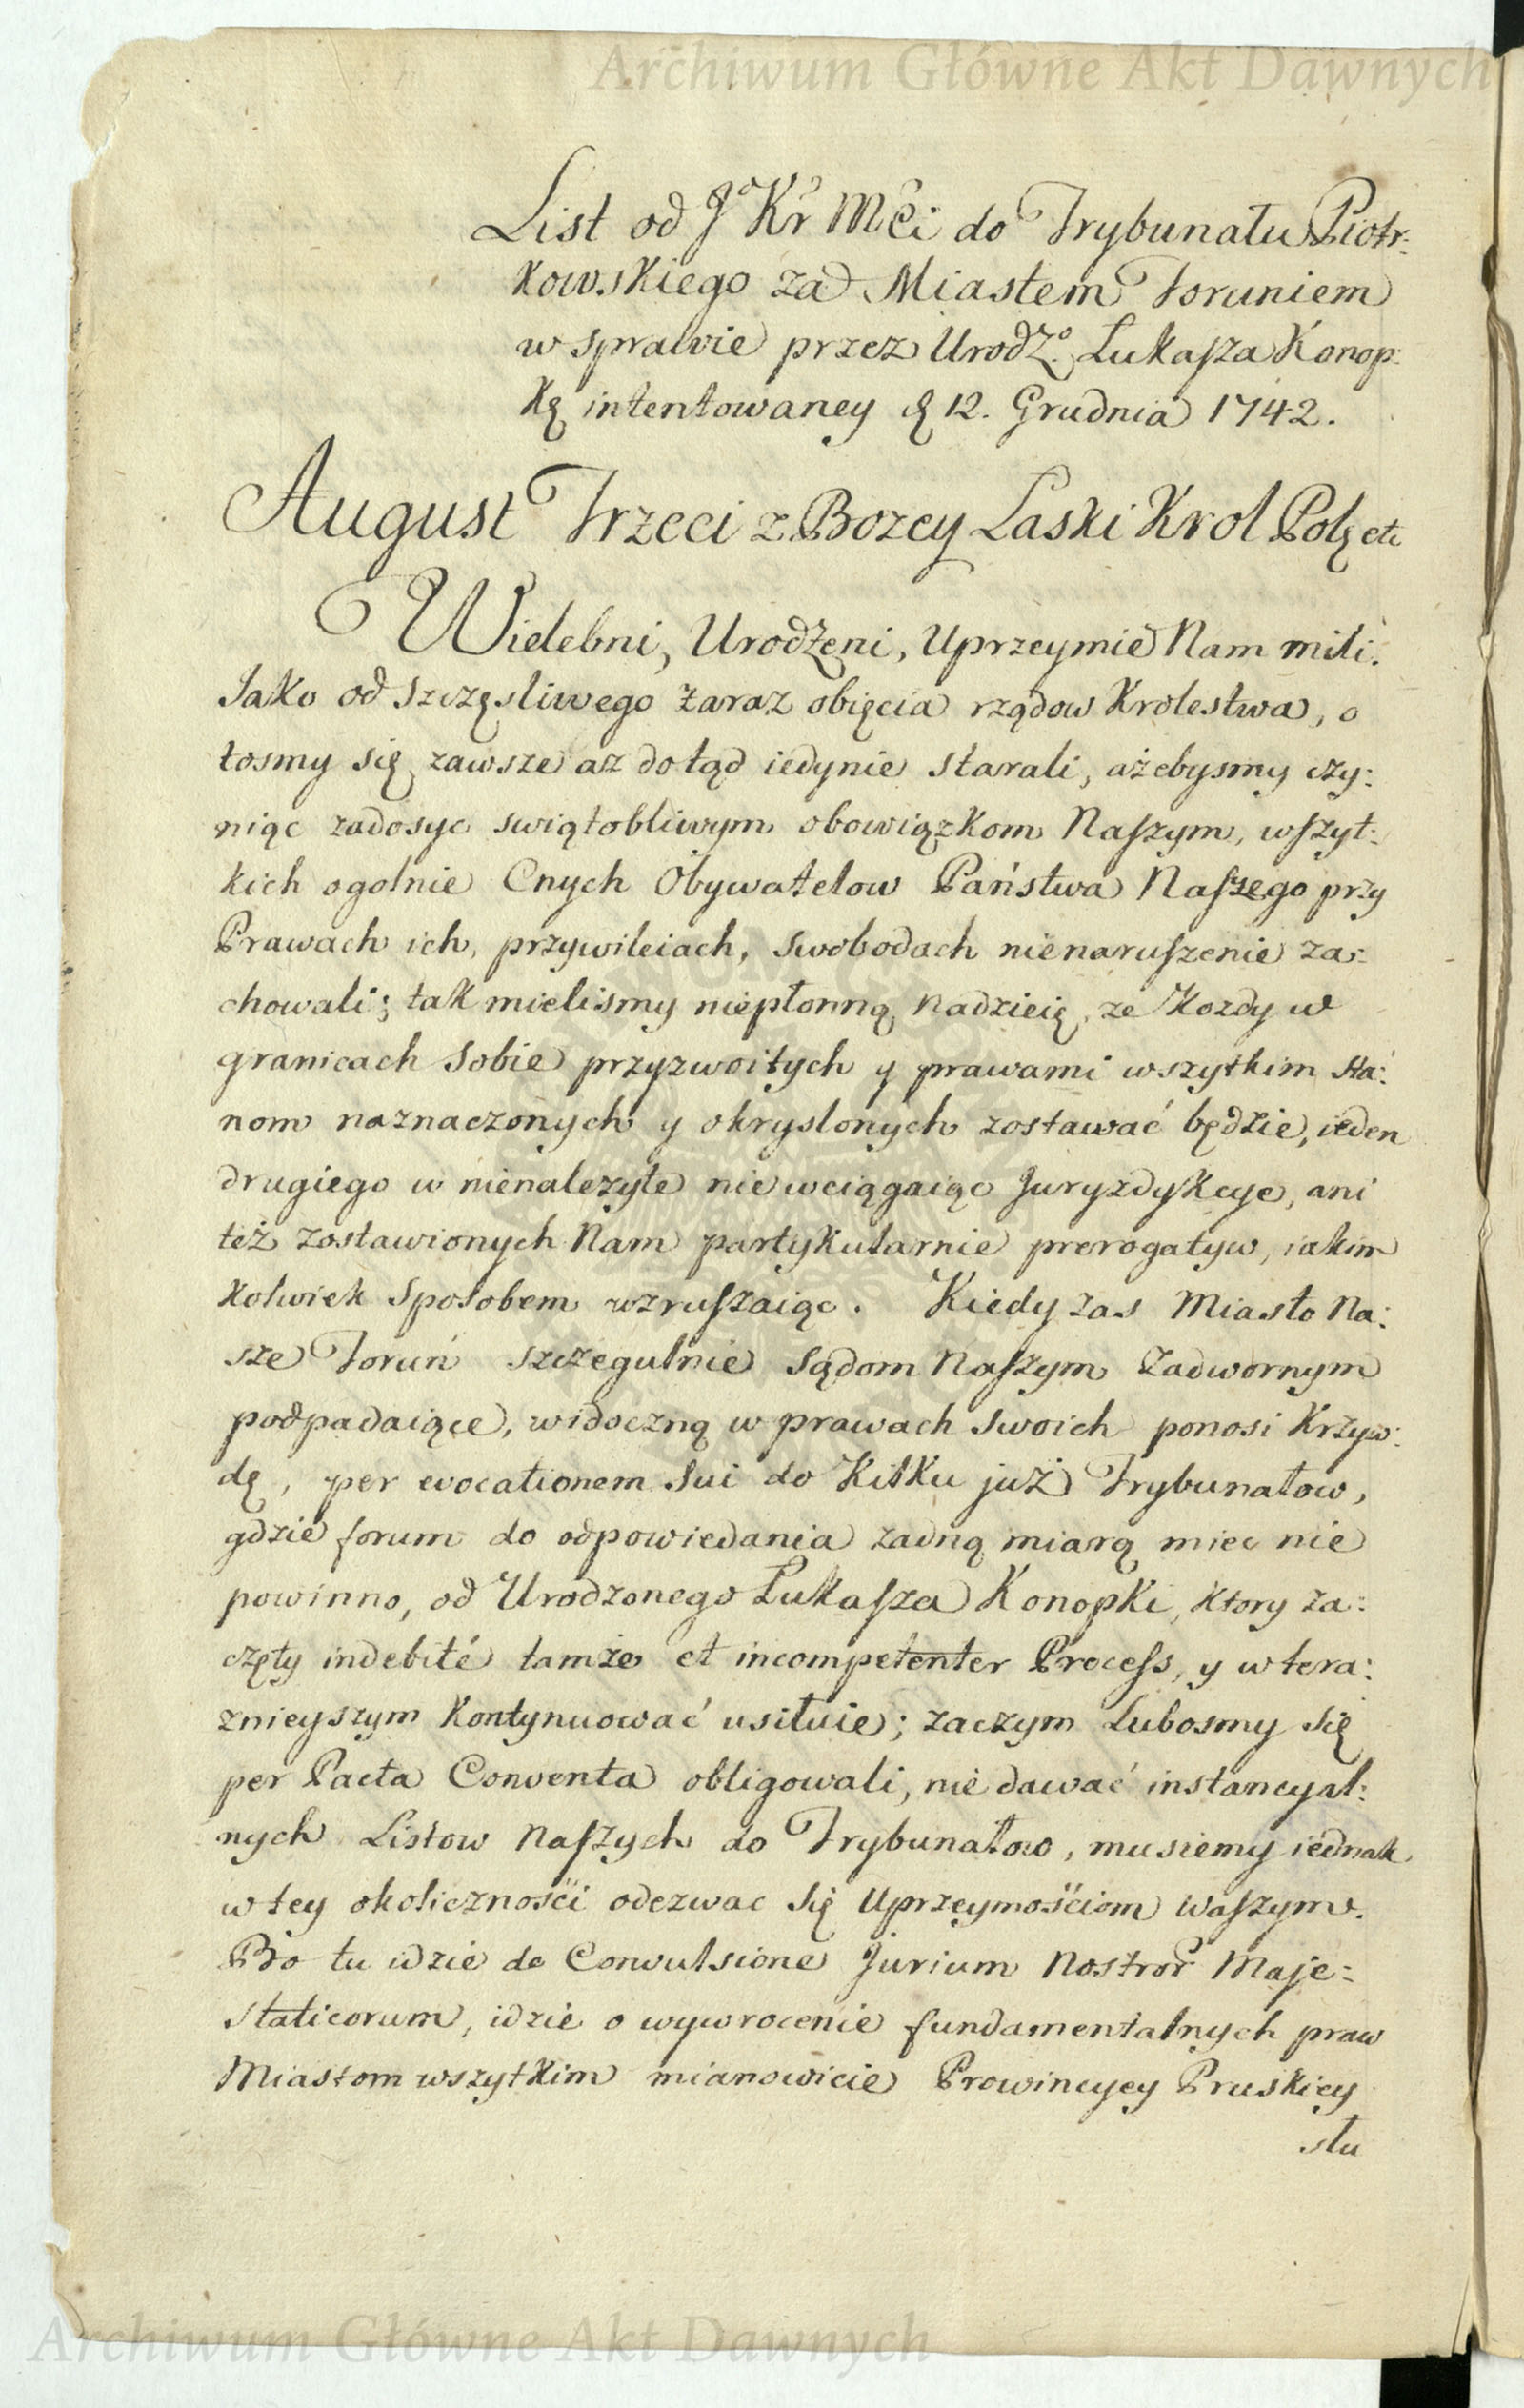 Archiwum Główne Akt Dawnych
List od Jo Kr Mci do Trybunału Piotr:
kowskiego za Miastem Toruniem
w sprawie przez Urodzo. Łukasza Konop:
kę intentowaney d. 12. Grudnia 1742.
August Trzeci z Bozey Łaski Krol Polę etc
Wielebni, Urodzeni, Uprzeymie Nam mili.
Jako od szczęsliwego zaraz obięcia rządow Krolestwa, o
tosmy się zawsze az dotąd iedynie starali, ażebysmy czy:
niąc zadosyc swiątobliwym obowiązkom Naszym, wszyt:
kich ogolnie Cnych Obywatelow Państwa Naszego przy
Prawach ich, przywileiach, swobodach nienaruszenie za:
chowali; tak mielismy niepłonną nadzieię, ze kozdy w
granicach sobie przyzwoitych y prawami wszytkim sta:
nom naznaczonych y okryslonych zostawać będzie, ieden
drugiego w nienalezyte nie wciągaiąc Juryzdykcye, ani
też zostawionych Nam partykularnie prerogatyw, iakim
kolwiek sposobem wzruszaiąc. Kiedy zas Miasto Na:
sze Toruń szczegulnie sądom Naszym Zadwornym
podpadaiące, widoczną w prawach swoich ponosi krzyw:
dę, per evocationem sui do kilku już Trybunałow,
gdzie forum do odpowiedania zadną miarą miec nie
powinno, od Urodzonego Łukasza Konopki, ktory za:
częty indebité tamże et incompetenter Process, y w tera:
znieyszym kontynuować usiłuie; zaczym lubosmy się
per Pacta Conventa obligowali, nie dawać instancyal:
nych Listow Naszych do Trybunałow, musiemy iednak
w tey okolicznośći odezwac się Uprzeymośćiom Waszym.
Bo tu idzie de Convulsione Jurium Nostror Maje:
staticorum, idzie o wywrocenie fundamentalnych praw
Miastom wszytkim mianowicie Prowincyey Pruskiey
słu
Archiwum Główne Akt Dawnych